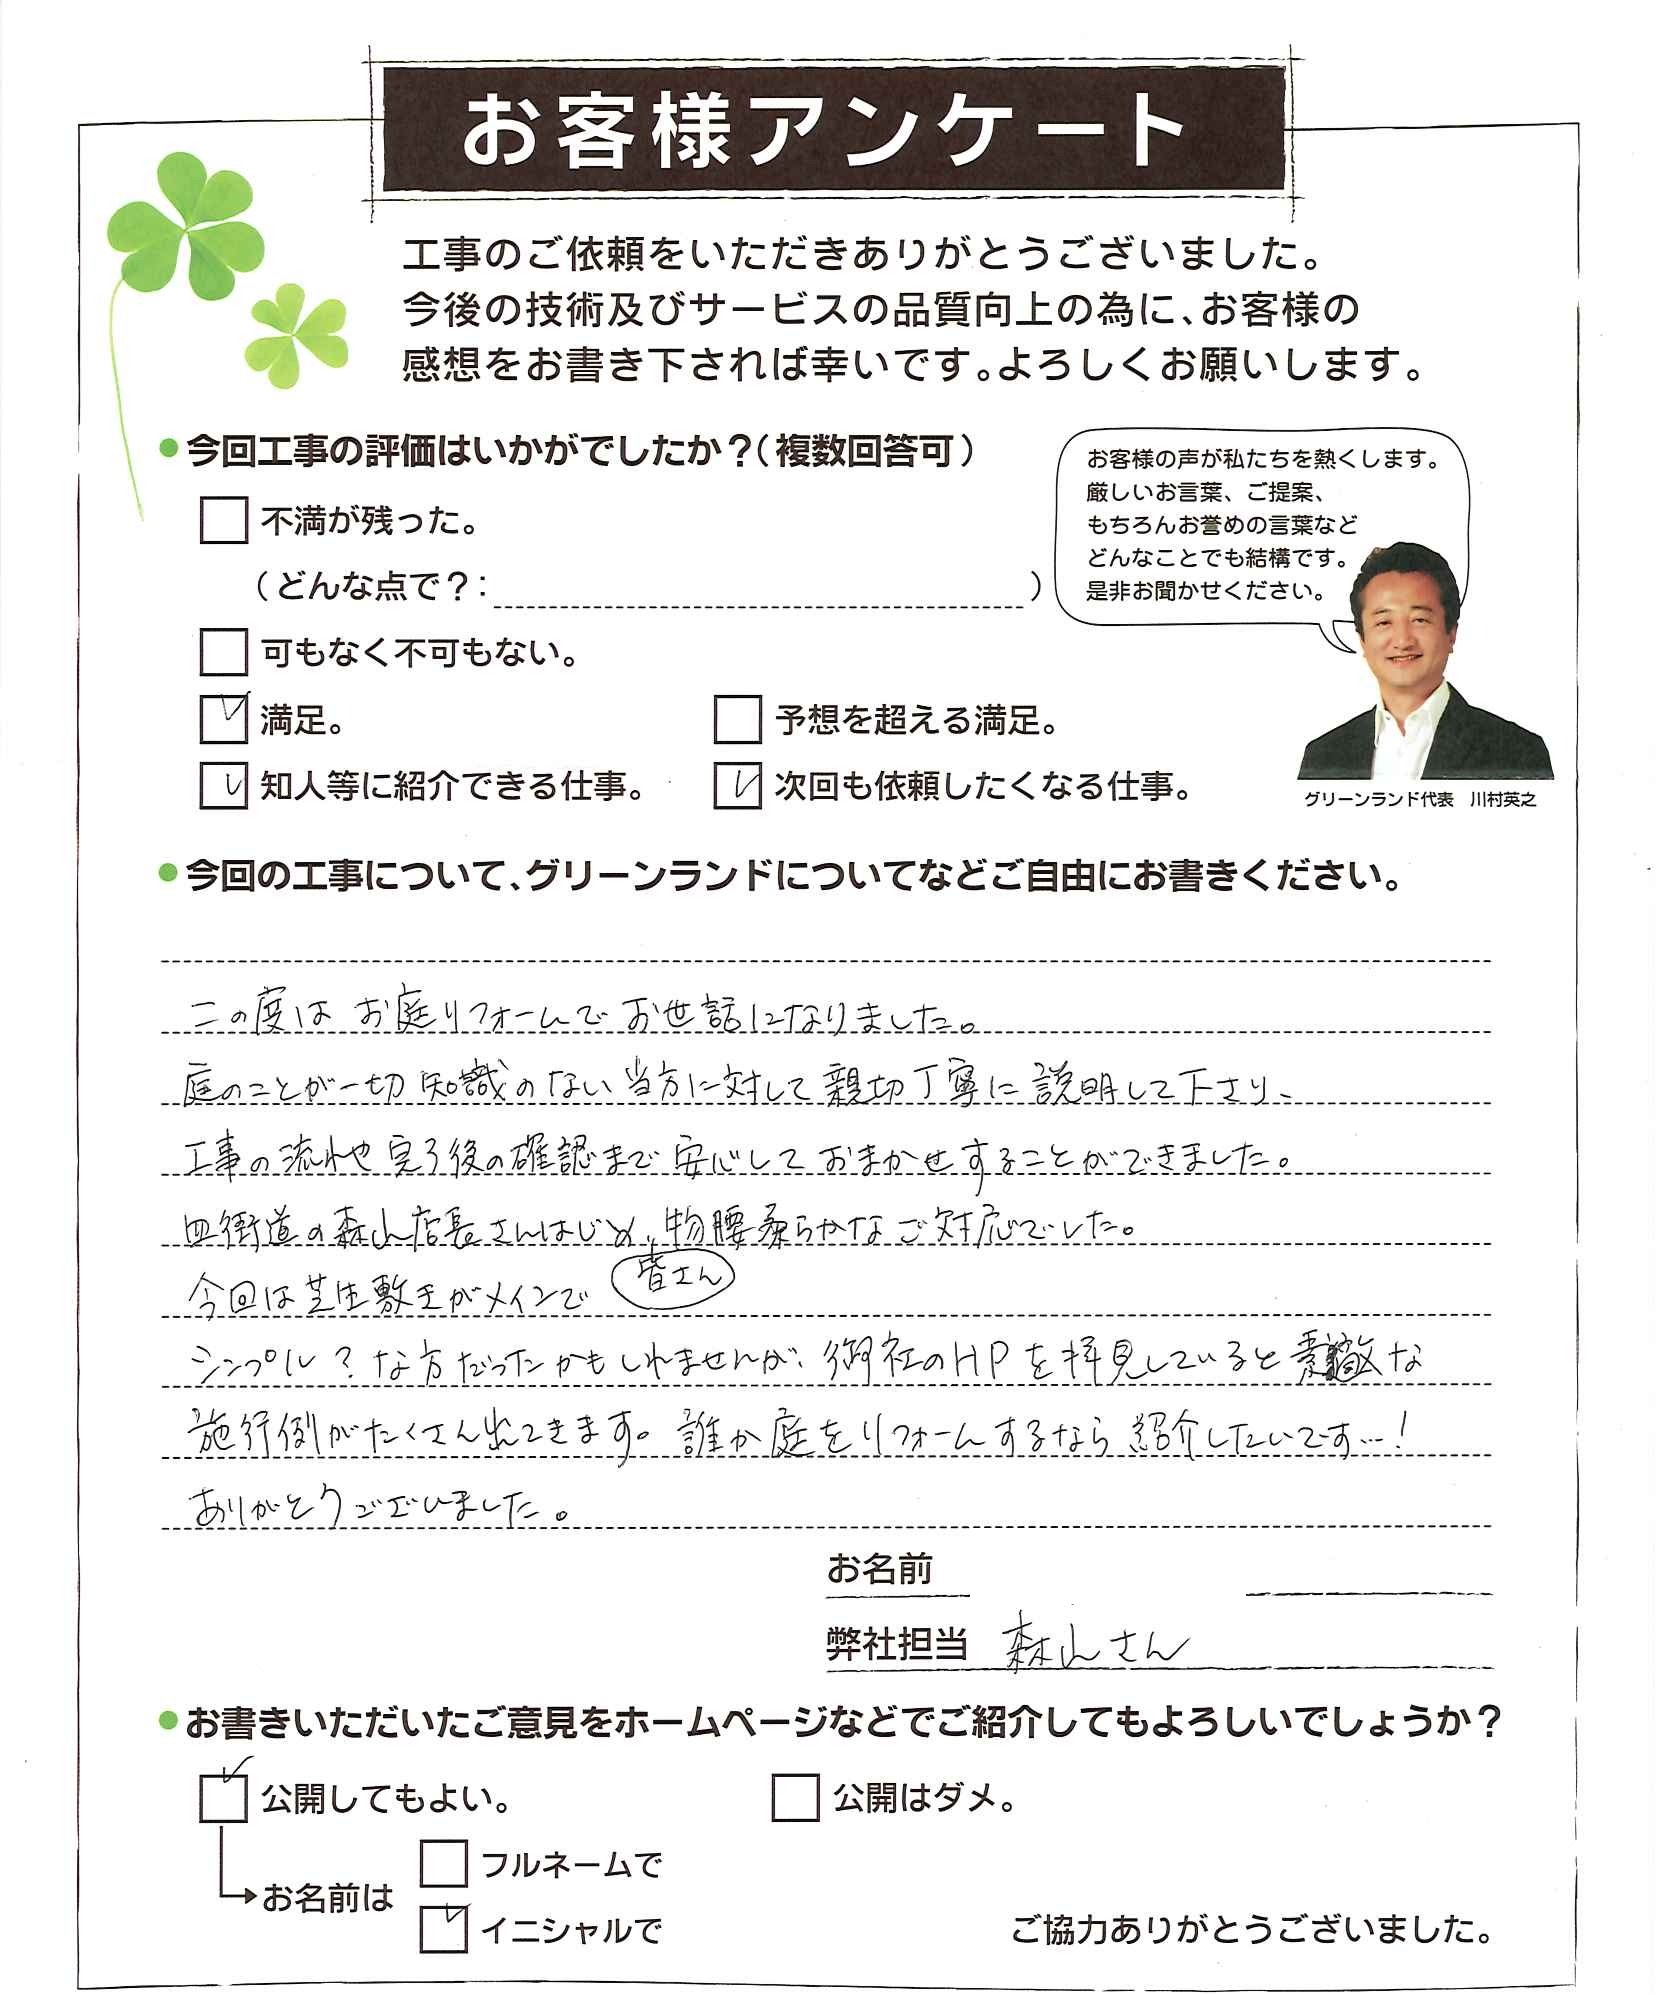 お客様アンケート
工事のご依頼をいただきありがとうございました。
今後の技術及びサービスの品質向上の為に、お客様の
感想をお書き下されば幸いです。よろしくお願いします。
今回工事の評価はいかがでしたか？（複数回答可）
不満が残った。
（どんな点で？：　）
可もなく不可もない。
満足。
予想を超える満足。
知人等に紹介できる仕事。
次回も依頼したくなる仕事。
お客様の声が私たちを熱くします。
厳しいお言葉、ご提案、
もちろんお誉めの言葉など
どんなことでも結構です。
是非お聞かせください。
グリーンランド代表　川村英之
今回の工事について、グリーンランドについてなどご自由にお書きください。
この度は お庭リフォームで お世話になりました。
庭のことが一切 知識のない 当方に対して 親切丁寧に 説明して下さり、
工事の流れや 完了後の確認まで 安心して おまかせすることができました。
四街道の森山店長さんはじめ、物腰柔らかな ご対応でした。
皆さん
今回は芝生敷きがメインで
シンプル？な方だったかもしれませんが、御社のHPを拝見していると 素敵な
施行例がたくさん出てきます。誰か庭をリフォームするなら紹介したいです…！
ありがとうございました。
お名前
弊社担当 森山さん
お書きいただいたご意見をホームページなどでご紹介してもよろしいでしょうか？
公開してもよい。
公開はダメ。
お名前は
フルネームで
イニシャルで
ご協力ありがとうございました。